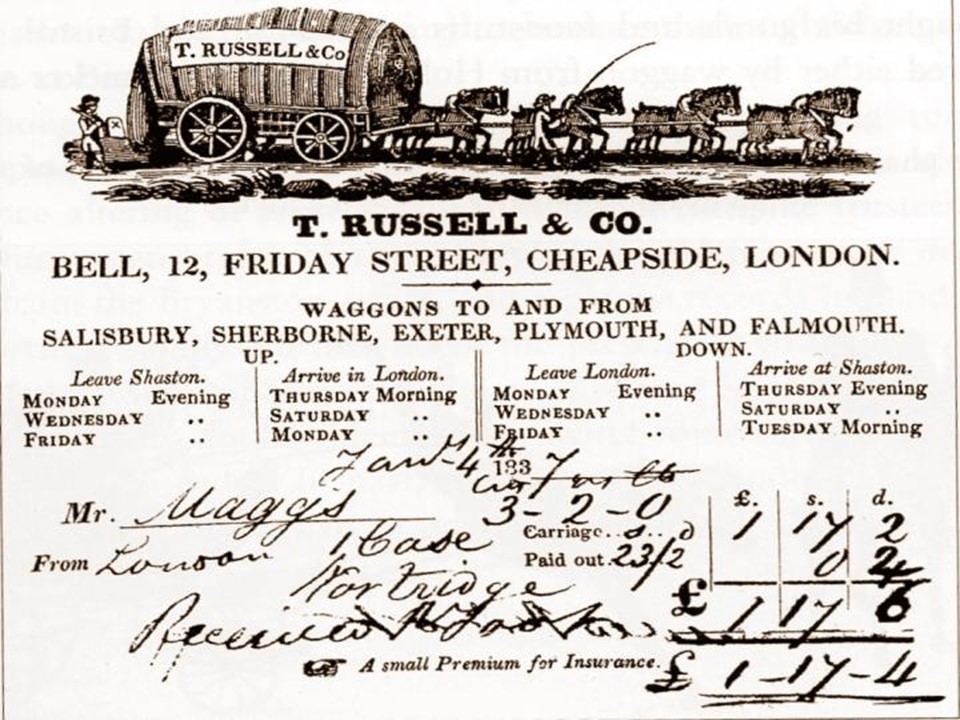 T. RUSSELL & Co
T. RUSSELL & CO.
BELL, 12, FRIDAY STREET, CHEAPSIDE, LONDON.
WAGGONS TO AND FROM
SALISBURY, SHERBORNE, EXETER, PLYMOUTH, AND FALMOUTH.
UP. DOWN.
Leave Shaston. Arrive in London. Leave London. Arrive at Shaston.
MONDAY Evening THURSDAY Morning MONDAY Evening THURSDAY Evening
WEDNESDAY .. SATURDAY .. WEDNESDAY .. SATURDAY ..
FRIDAY .. MONDAY .. FRIDAY TUESDAY Morning
4th 1837
Mr. Maggs 3-2-0 £. s. d.
1 Case Carriage. 1 17 2
From London Paid out. 23/2 0
£ 1 17 6
Received
A small Premium for Insurance. £ 1-17-4